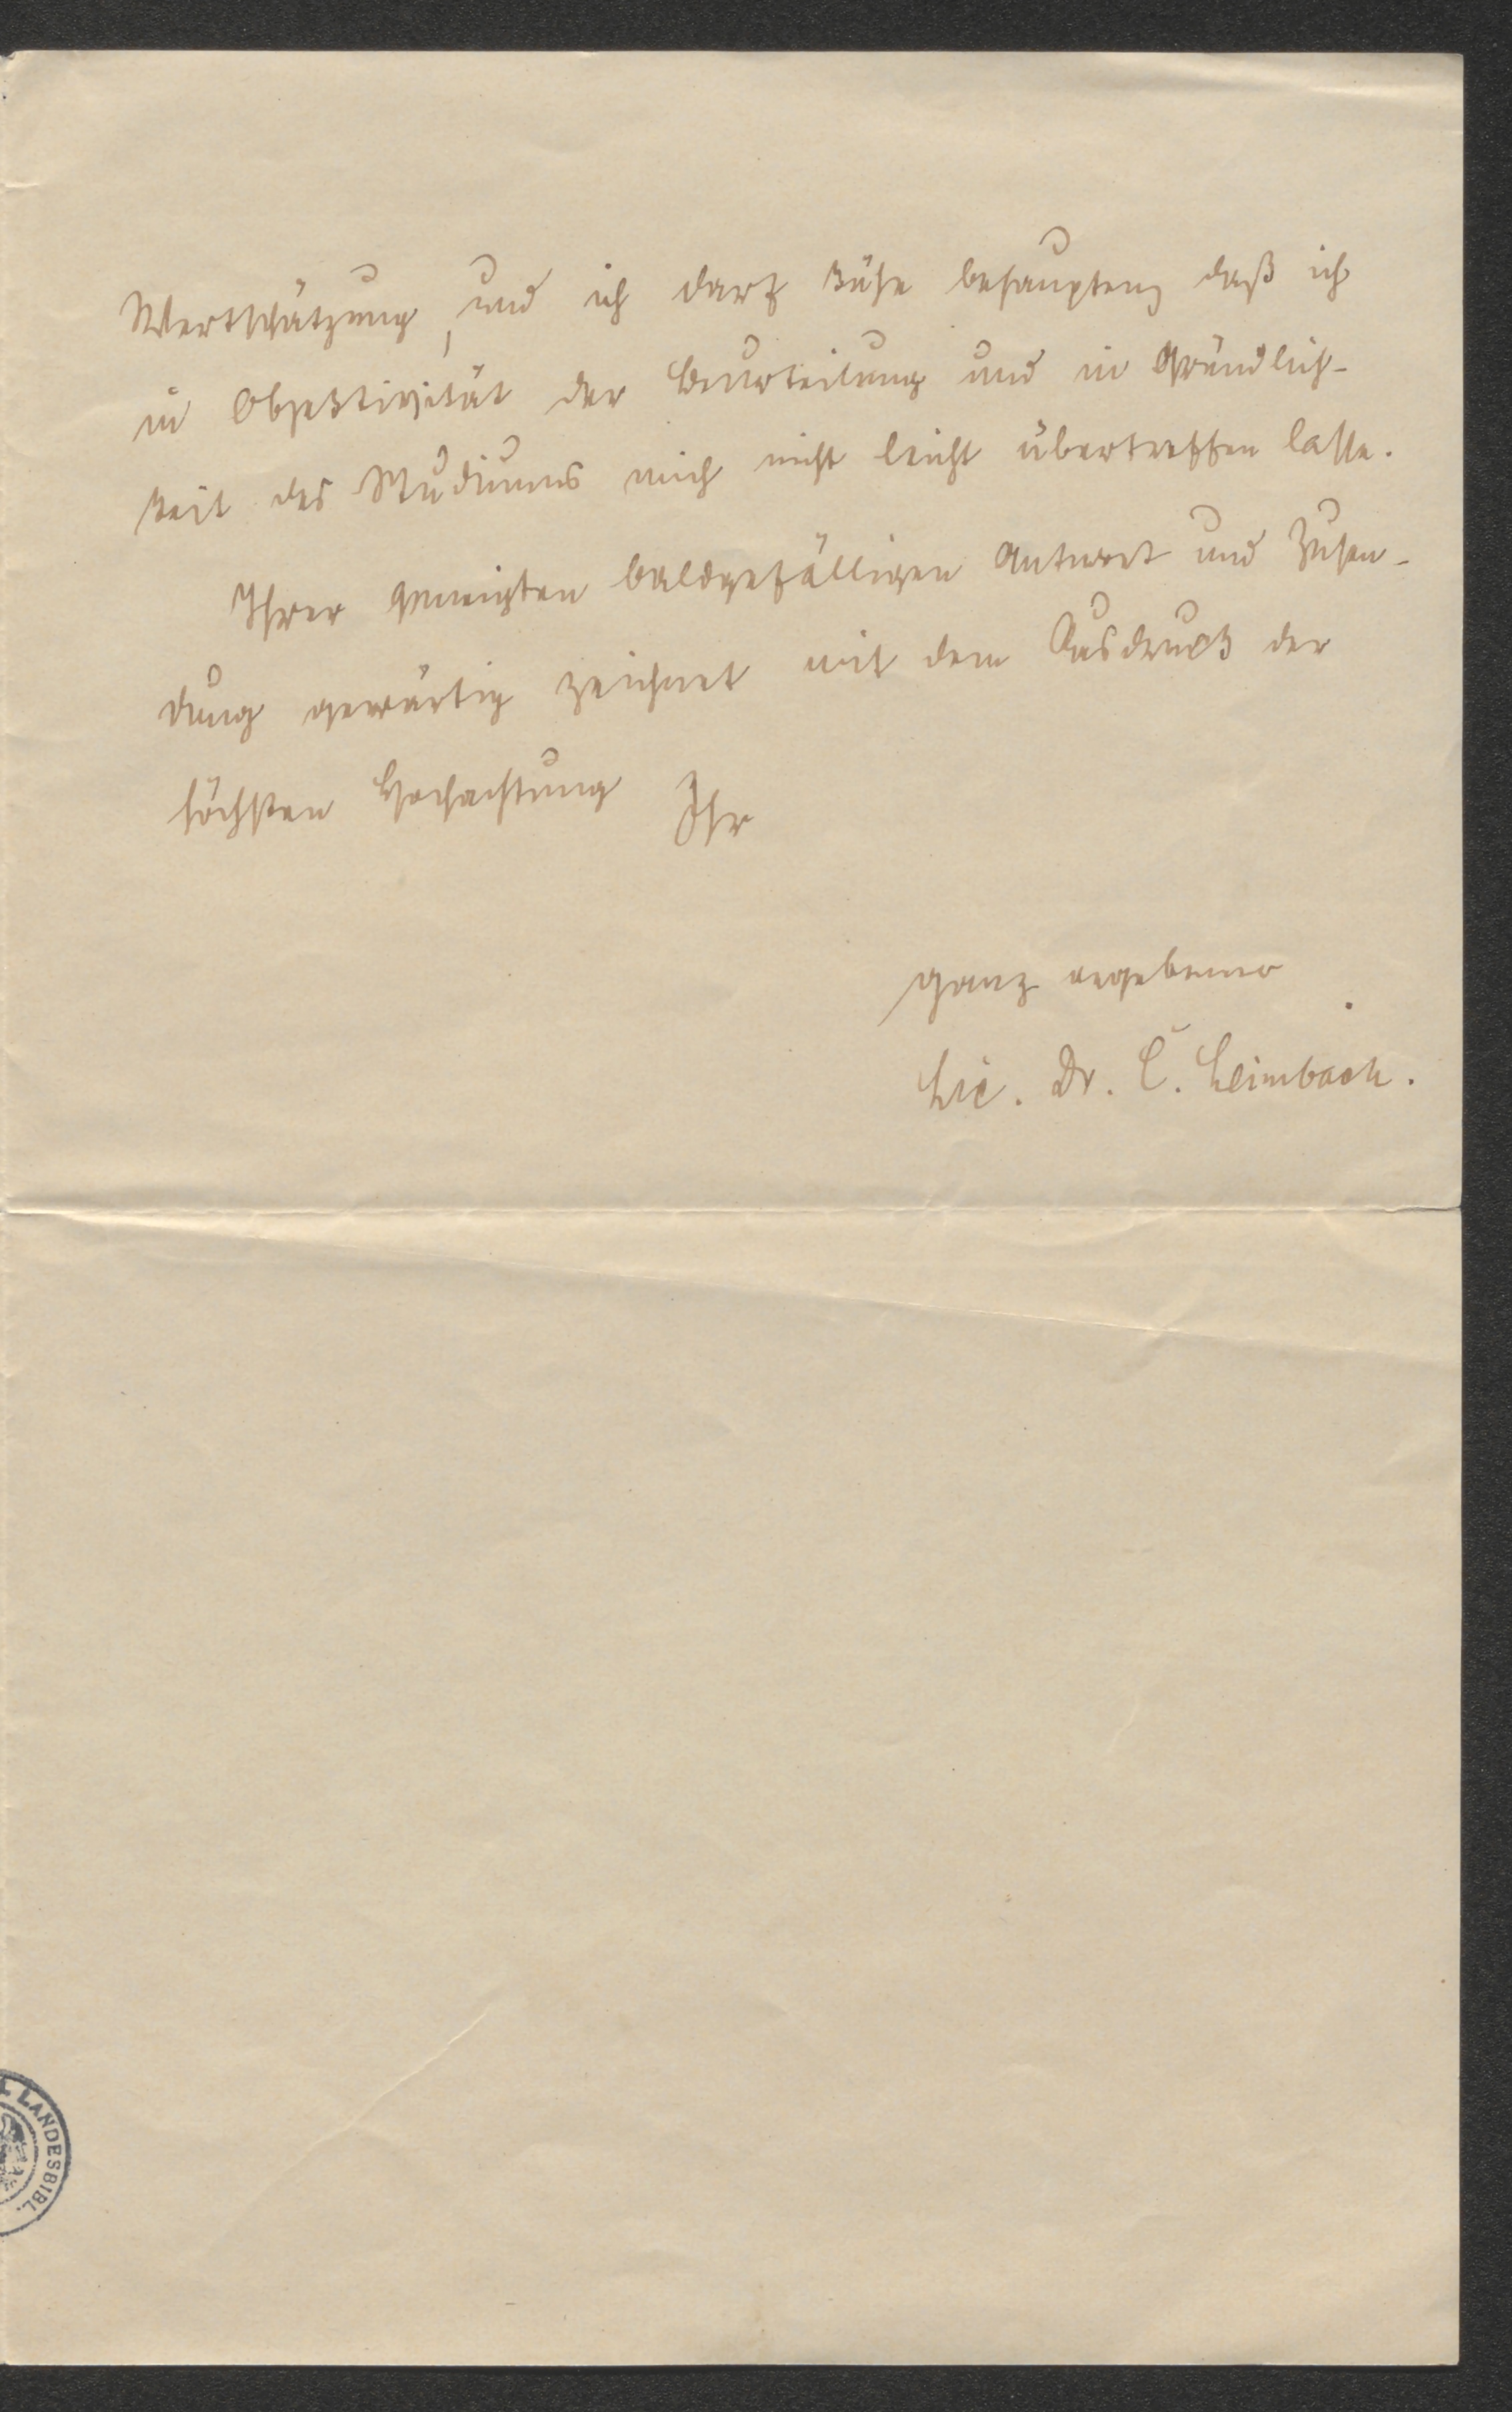 Wertschätzung, und ich darf kühn behaupten, daß ich
in Objektivität der Beurteilung und in Gründlich-
keit des Studiums mich nicht leicht übertreffen lasse.
Ihrer geneigten baldgefälligen Antwort und Zusen-
dung gewärtig zeichnet mit dem Ausdruck der
höchsten Hochachtung Ihr
ganz ergebener
Lic. Dr. C. Leimbach.
LANDESBIBL.